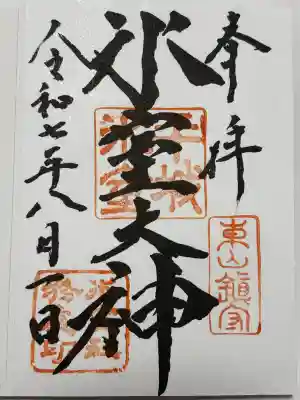 奉拝
東山鎮守
氷室大神
令和七年八月一日